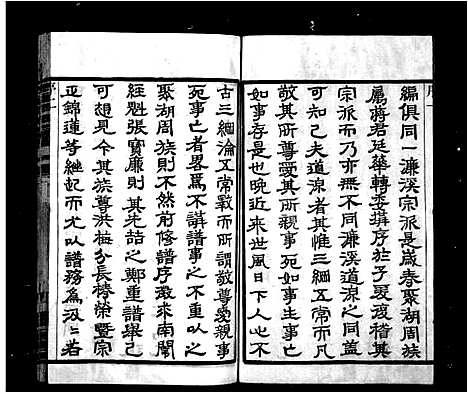 序一
編俱同一濂溪宗派是歲春聚湖周族
属蔣君廷華轉委璜序於予爰溯稽其
宗派而乃亦無不同濂溪道源之同蓋
可知已夫道源者其惟三綱五常而凡
敬其所尊愛其所親事死如事生事亡
如事存是也晚近來世風日下人心不
古三綱淪五常斁而所謂敬尊愛親事
死事亡者畧焉不講譜事之不重以之
聚湖周族則不然前修譜序敦來南闈
經魁張寳廉則其先喆之鄭重譜舉已
可想見今其族尊洪梅分長榜榮暨宗
正錦蓮等继起而尤以譜務為汲汲若
序二